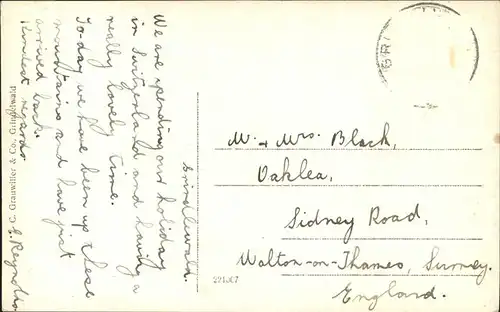 Grindlewald.
We are spending our holiday
in Switzerland and having a
really lovely time.
To-day we have been up these
mountains and have just
arrived back.
Kindest regards
E. Reynolds
C. Grauwiller & Co., Grindelwald
221.
M. + Mrs. Black,
Oaklea,
Sidney Road,
Walton-on-Thames, Surrey.
England.